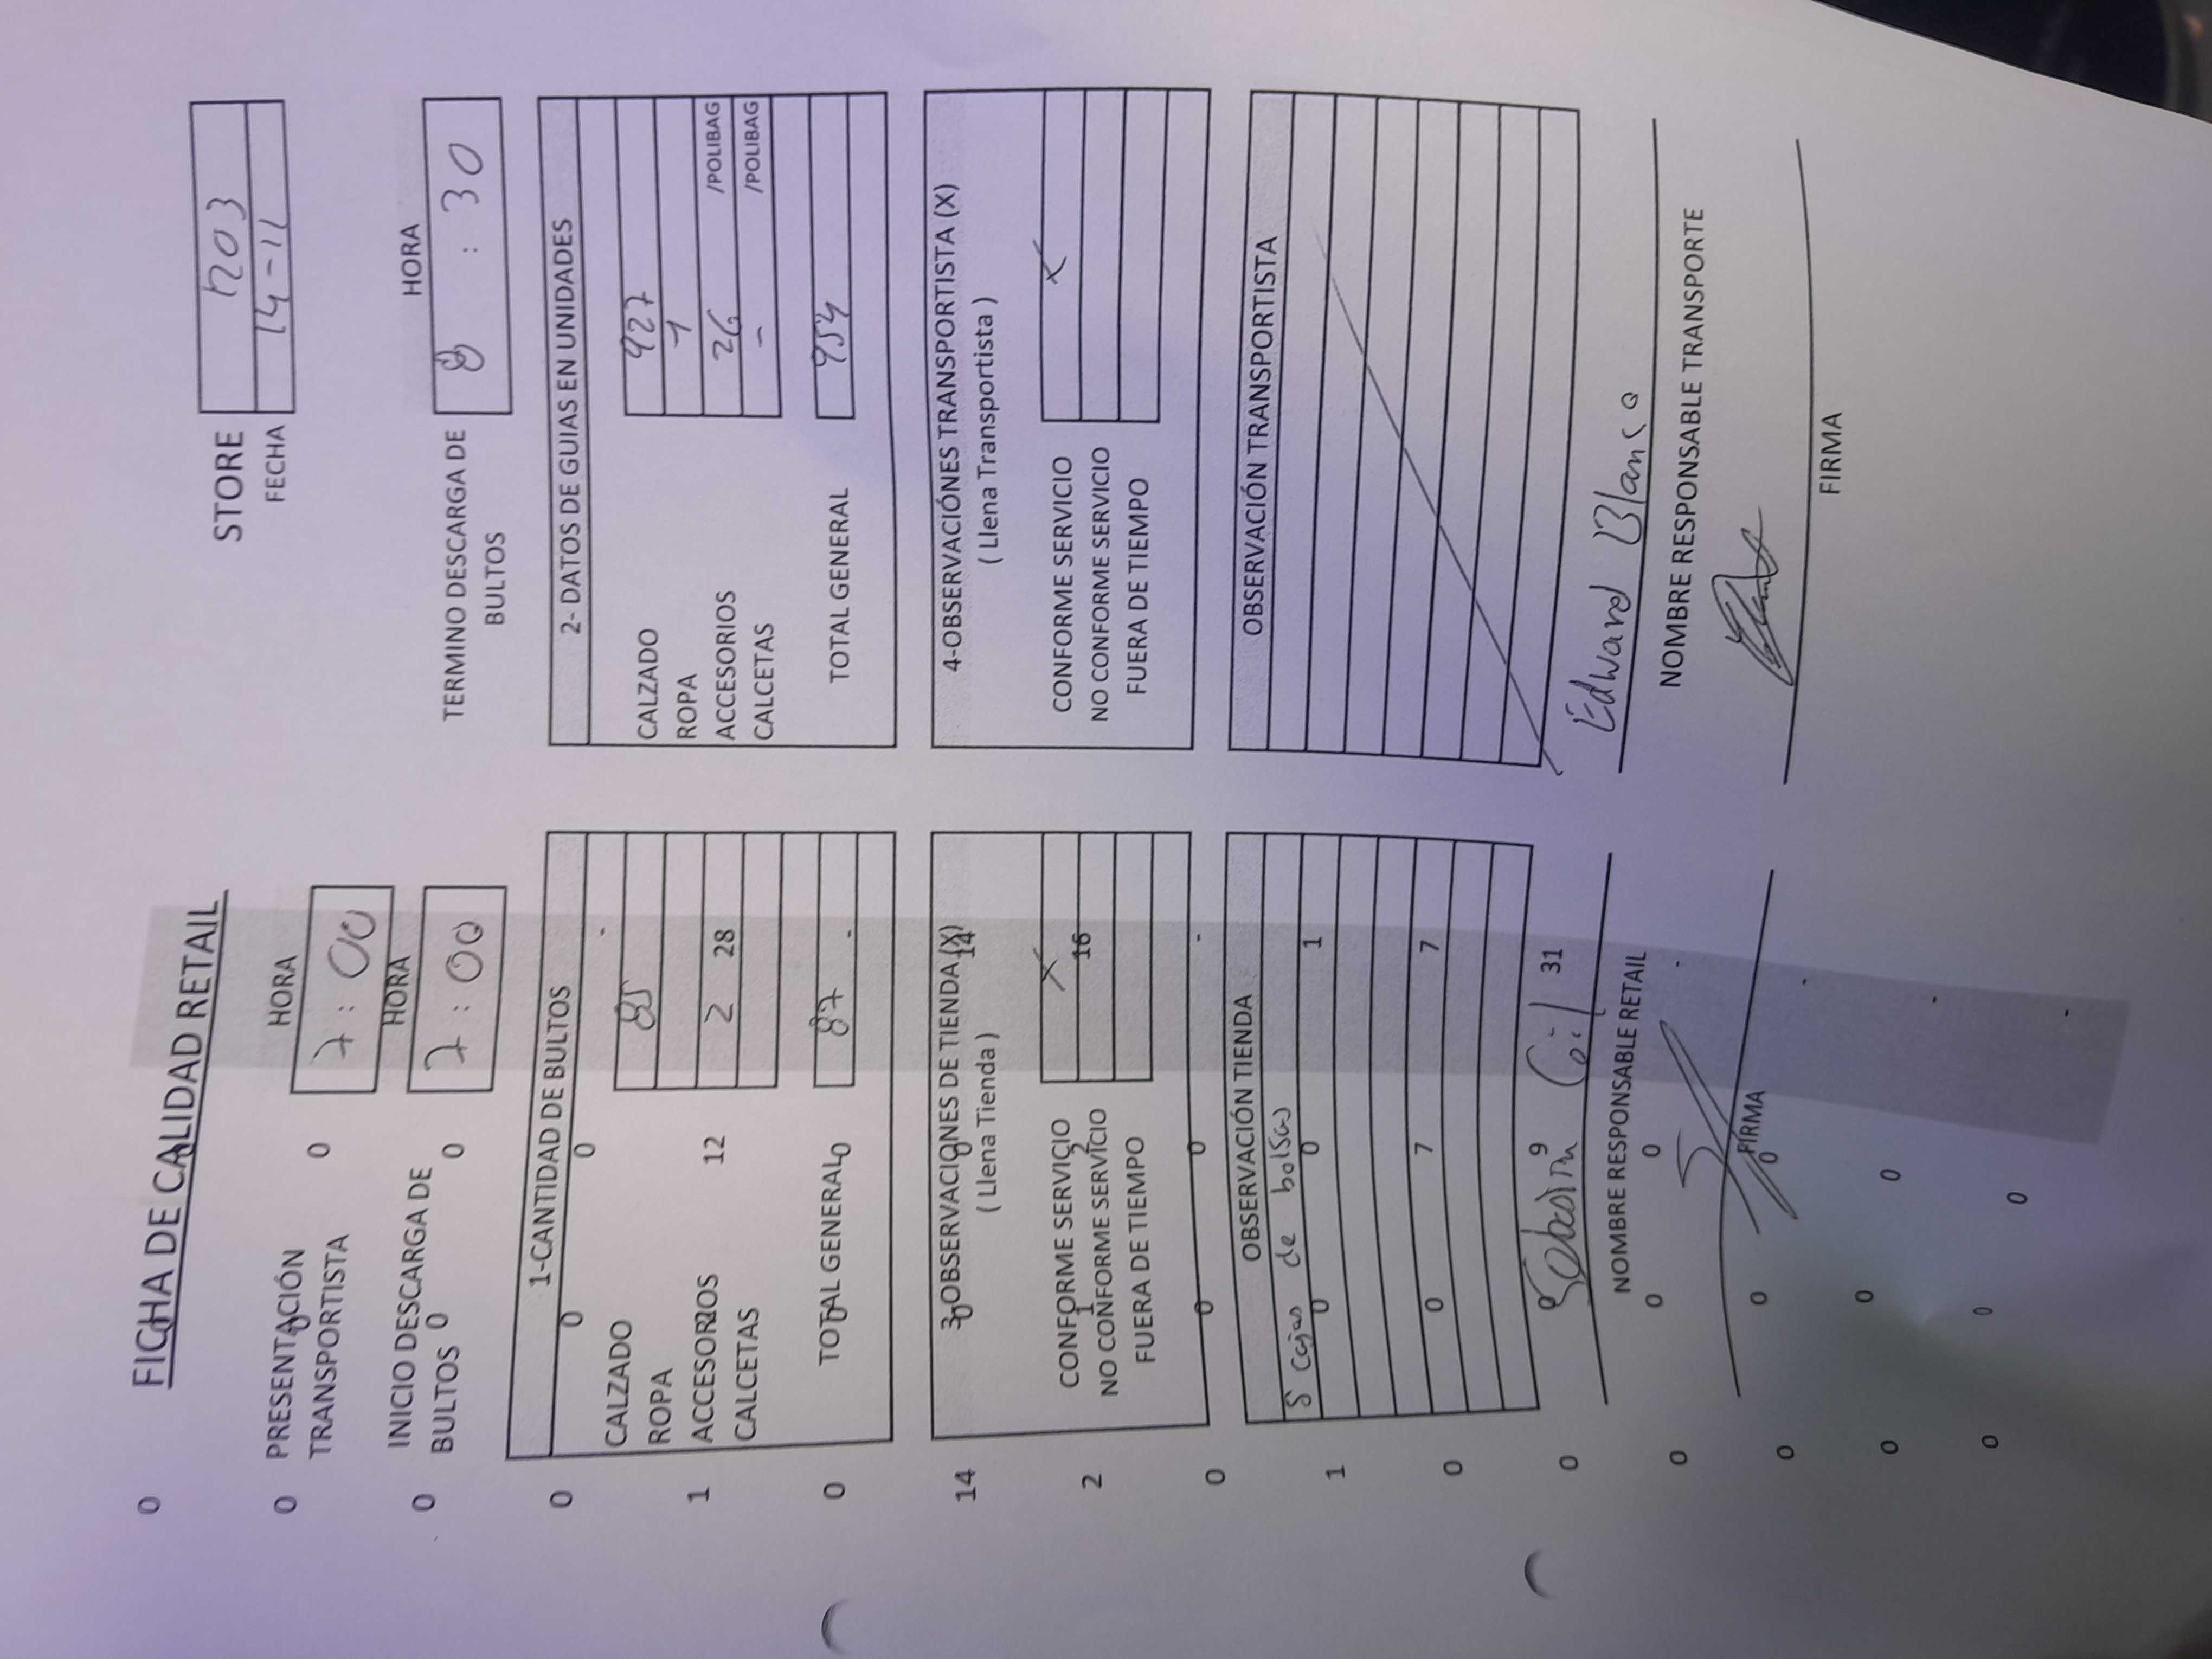 FICHA DE CALIDAD RETAIL
STORE
FECHA 14-11
PRESENTACIÓN TRANSPORTISTA
HORA
7 : 00
INICIO DESCARGA DE BULTOS
HORA
7 : 00
TERMINO DESCARGA DE BULTOS
HORA
8 : 30
1-CANTIDAD DE BULTOS
CALZADO 85
ROPA
ACCESORIOS 2
CALCETAS
TOTAL GENERAL 87
2- DATOS DE GUIAS EN UNIDADES
CALZADO 927
ROPA 1
ACCESORIOS 26 /POLIBAG
CALCETAS - /POLIBAG
TOTAL GENERAL 954
3-OBSERVACIONES DE TIENDA (X)
( Llena Tienda )
CONFORME SERVICIO X
NO CONFORME SERVICIO
FUERA DE TIEMPO
4-OBSERVACIÓNES TRANSPORTISTA (X)
( Llena Transportista )
CONFORME SERVICIO X
NO CONFORME SERVICIO
FUERA DE TIEMPO
OBSERVACIÓN TIENDA
cajas de bolsas
OBSERVACIÓN TRANSPORTISTA
NOMBRE RESPONSABLE RETAIL
FIRMA
Edward Blanco
NOMBRE RESPONSABLE TRANSPORTE
FIRMA